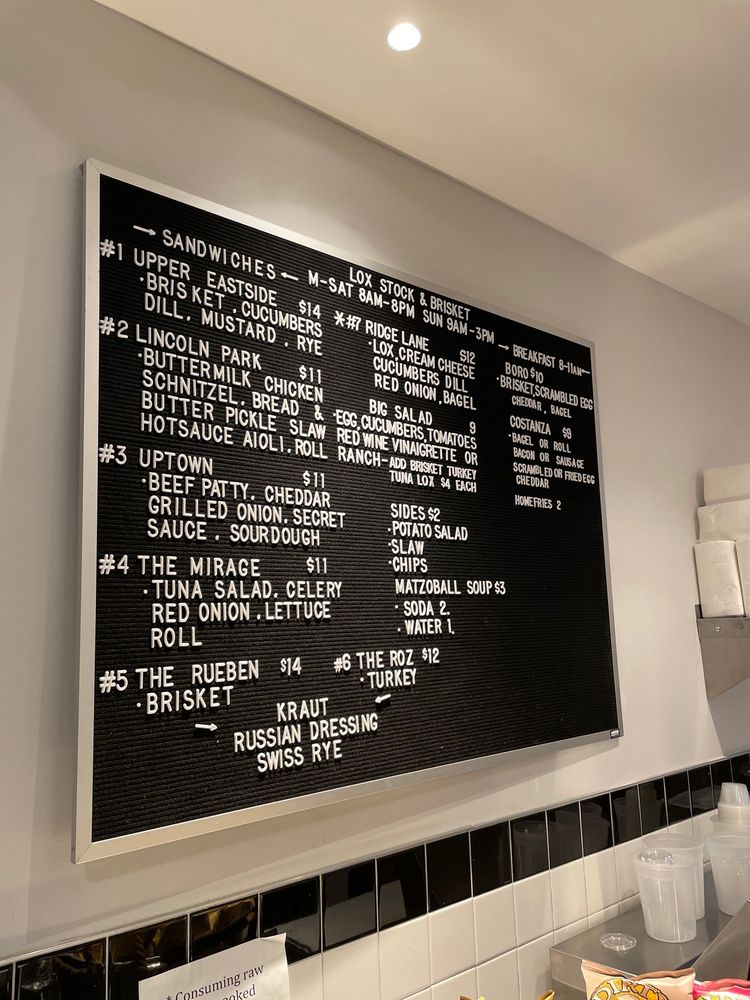 → SANDWICHES ←
#1 UPPER EASTSIDE $14
·BRISKET . CUCUMBERS
DILL. MUSTARD . RYE
#2 LINCOLN PARK $11
·BUTTERMILK CHICKEN
SCHNITZEL. BREAD &
BUTTER PICKLE SLAW
HOTSAUCE AIOLI. ROLL
#3 UPTOWN $11
·BEEF PATTY. CHEDDAR
GRILLED ONION. SECRET
SAUCE . SOURDOUGH
#4 THE MIRAGE $11
·TUNA SALAD. CELERY
RED ONION .LETTUCE
ROLL
#5 THE RUEBEN $14
·BRISKET
#6 THE ROZ $12
·TURKEY
→ KRAUT ←
RUSSIAN DRESSING
SWISS RYE
LOX STOCK & BRISKET
M-SAT 8AM-8PM SUN 9AM-3PM
*#7 RIDGE LANE $12
·LOX, CREAM CHEESE
CUCUMBERS DILL
RED ONION, BAGEL
BIG SALAD 9
·EGG, CUCUMBERS, TOMATOES
RED WINE VINAIGRETTE OR
RANCH-ADD BRISKET TURKEY
TUNA LOX $4 EACH
SIDES $2
·POTATO SALAD
·SLAW
·CHIPS
MATZOBALL SOUP $3
· SODA 2.
· WATER 1.
→ BREAKFAST 8-11AM←
BORO $10
·BRISKET,SCRAMBLED EGG
CHEDDAR , BAGEL
COSTANZA $9
·BAGEL OR ROLL
BACON OR SAUSAGE
SCRAMBLED OR FRIED EGG
CHEDDAR
HOMEFRIES 2
* Consuming raw
DIRTY